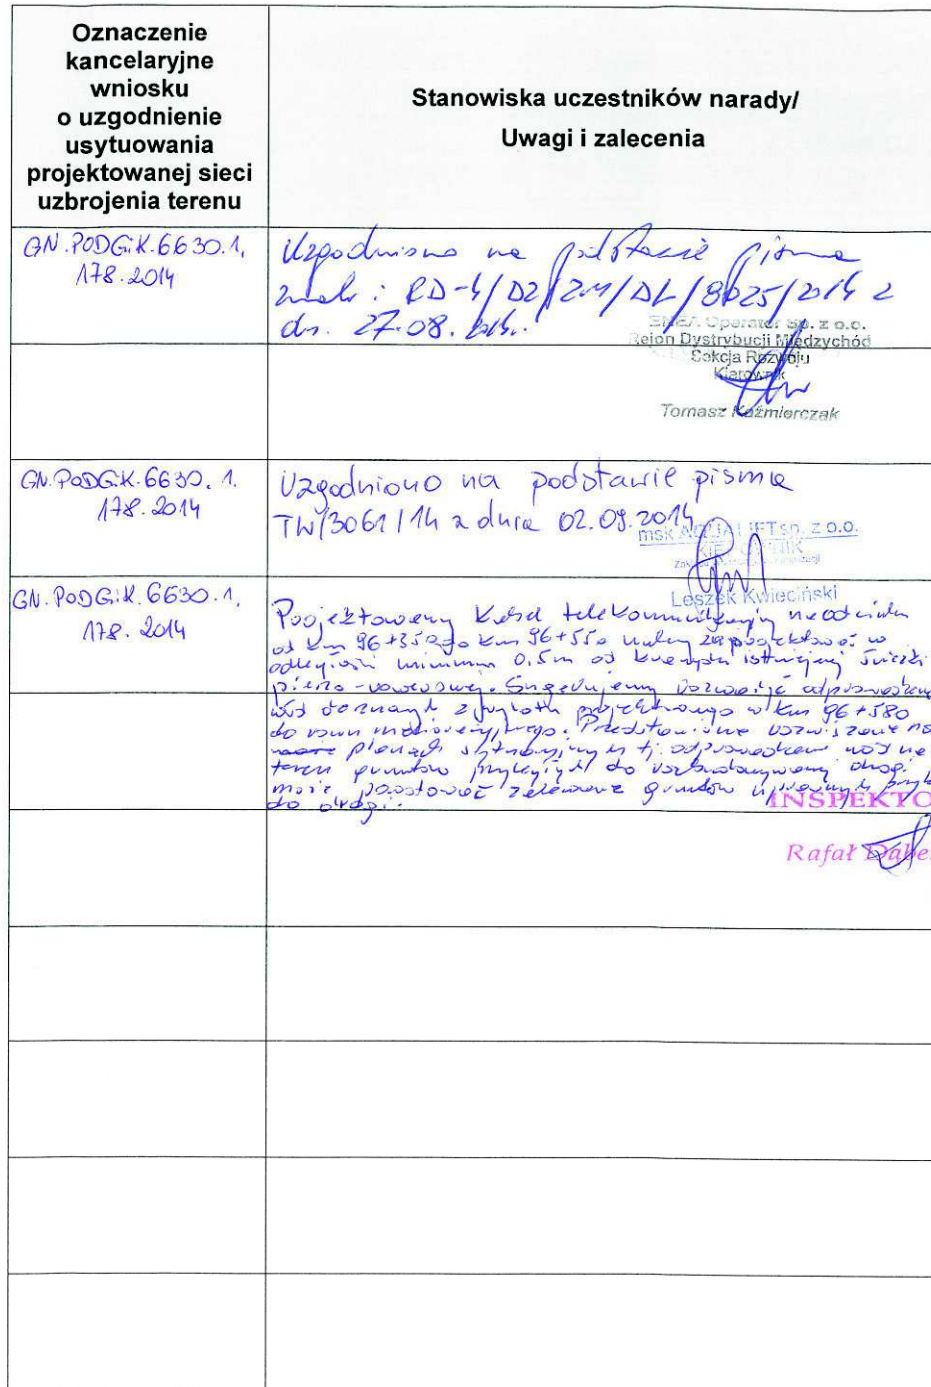 Oznaczenie
kancelaryjne
wniosku
o uzgodnienie
usytuowania
projektowanej sieci
uzbrojenia terenu
Stanowiska uczestników narady/
Uwagi i zalecenia
GN.PODGiK.6630.1.
178.2014
Uzgodniono na podstawie pisma
znak: RD-4/DZ/ZM/DL/8025/2014 z
dn. 27.08.
ENEA Operator Sp. z o.o.
Rejon Dystrybucji Międzychód
Sekcja Rozwoju
Kierownik
Tomasz Kaźmierczak
GN.PODGiK.6630.1.
178.2014
Uzgodniono na podstawie pisma
TW/3061/14 z dnia 02.09.2014
msk AQUALIFT sp. z o.o.
KIEROWNIK
Leszek Kwieciński
GN.PODGiK.6630.1.
178.2014
Projektowany kanał telekomunikacyjny na odcinku
od km 96+350 do km 96+550 należy zaprojektować w
odległości minimum 0,5m od krawędzi istniejącej ścieżki
pieszo-rowerowej. Sugerujemy rozważyć odprowadzenie
wód z projektowanego w km 96+580
do rowu melioracyjnego. Przedstawione rozwiązanie na
planach sytuacyjnych tj. odprowadzenie wód na
teren gruntów przyległych do rozbudowywanej drogi
może powodować zalewanie gruntów uprawnych
do drogi.
INSPEKTO
Rafał